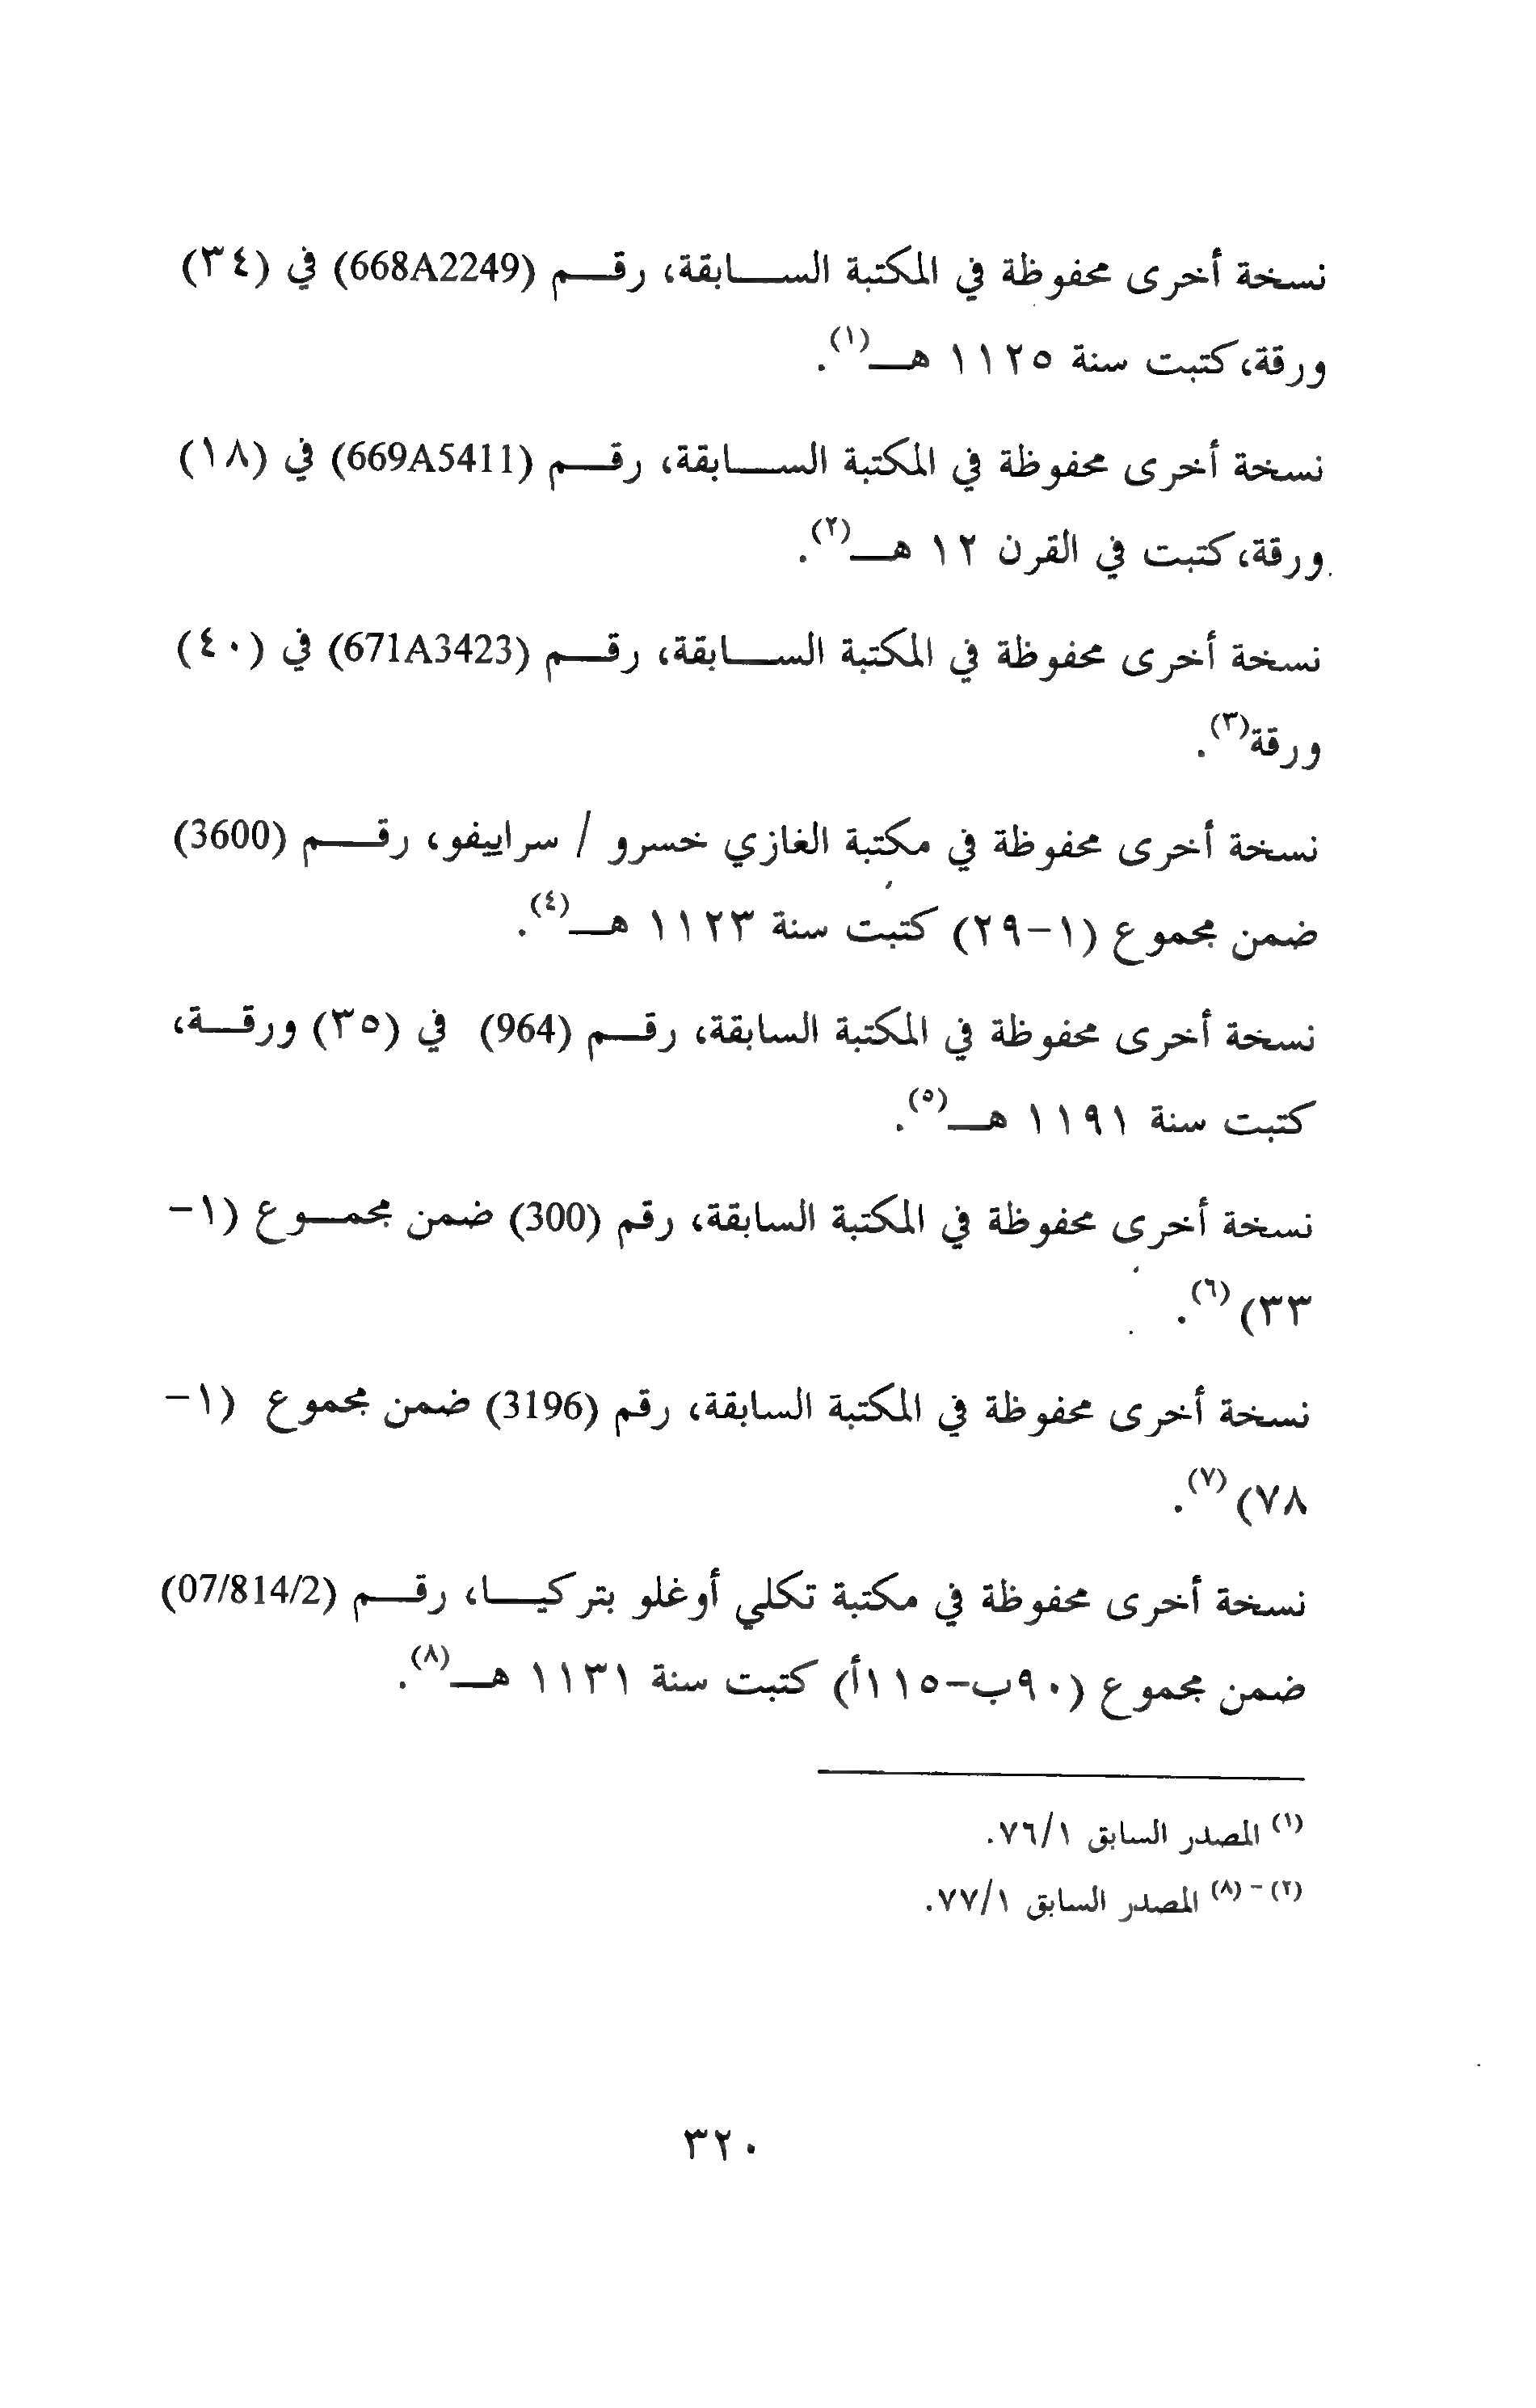 نسخة أخرى محفوظة في المكتبة السابقة، رقم (668A2249) في (٣٤)
ورقة، كتبت سنة ١١٢٥ هـ(١).
نسخة أخرى محفوظة في المكتبة السابقة، رقم (669A5411) في (١٨)
ورقة، كتبت في القرن ١٢ هـ(٢).
نسخة أخرى محفوظة في المكتبة السابقة، رقم (671A3423) في (٤٠)
ورقة(٣).
نسخة أخرى محفوظة في مكتبة الغازي خسرو / سراييفو، رقم (3600)
ضمن مجموع (١-٢٩) كتبت سنة ١١٢٣ هـ(٤).
نسخة أخرى محفوظة في المكتبة السابقة، رقم (964) في (٣٥) ورقة،
كتبت سنة ١١٩١ هـ(٥).
نسخة أخرى محفوظة في المكتبة السابقة، رقم (300) ضمن مجموع (١-
٣٣) (٦).
نسخة أخرى محفوظة في المكتبة السابقة، رقم (3196) ضمن مجموع (١-
٧٨) (٧).
نسخة أخرى محفوظة في مكتبة تكلي أوغلو بتركيا، رقم (07/814/2)
ضمن مجموع (٩٠ب-١١٥أ) كتبت سنة ١١٣١ هـ(٨).
(١) المصدر السابق ٧٦/١.
(٢) - (٨) المصدر السابق ٧٧/١.
٣٢٠